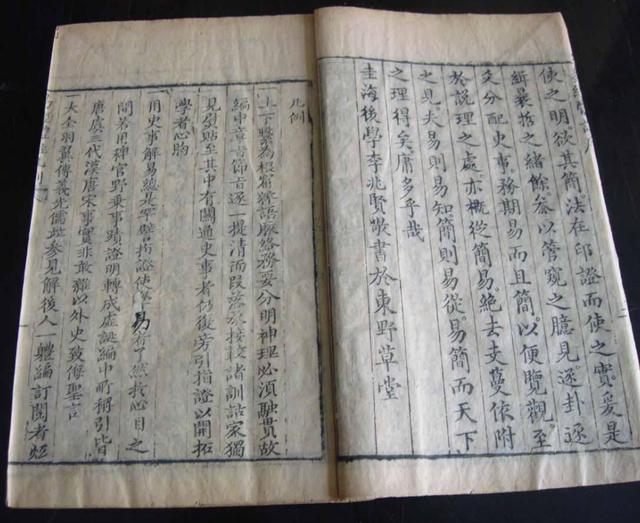 使之明欲其簡法在印證而使之實爰是
緝暴括之緒餘參以管窺之臆見逐卦逐
爻分配史事務期易而且簡以便覽觀至
於說理之處亦概從簡易絕去支蔓依附
之見夫易則易知簡則易從易簡而天下
之理得矣庸多乎哉
圭海後學李兆賢敬書於東野草堂
凡例
一上下繫為根着辭語脈絡務要分明神理必須融貫故
編中章旨節旨逐一提清而段落承接較諸訓詁家獨
見熨貼至其中有關通史事者仍復旁引指證以開拓
學者心胸
一用史事解易總是罕譬指證使學易有了然於心目之
間若用稗官野乘事蹟證明轉成虛誕編中所稱引皆
唐虞三代漢唐宋事實非敢雜以外史致侮聖言
一大全羽翼傳義先儒
參見解後人一
編訂閱者